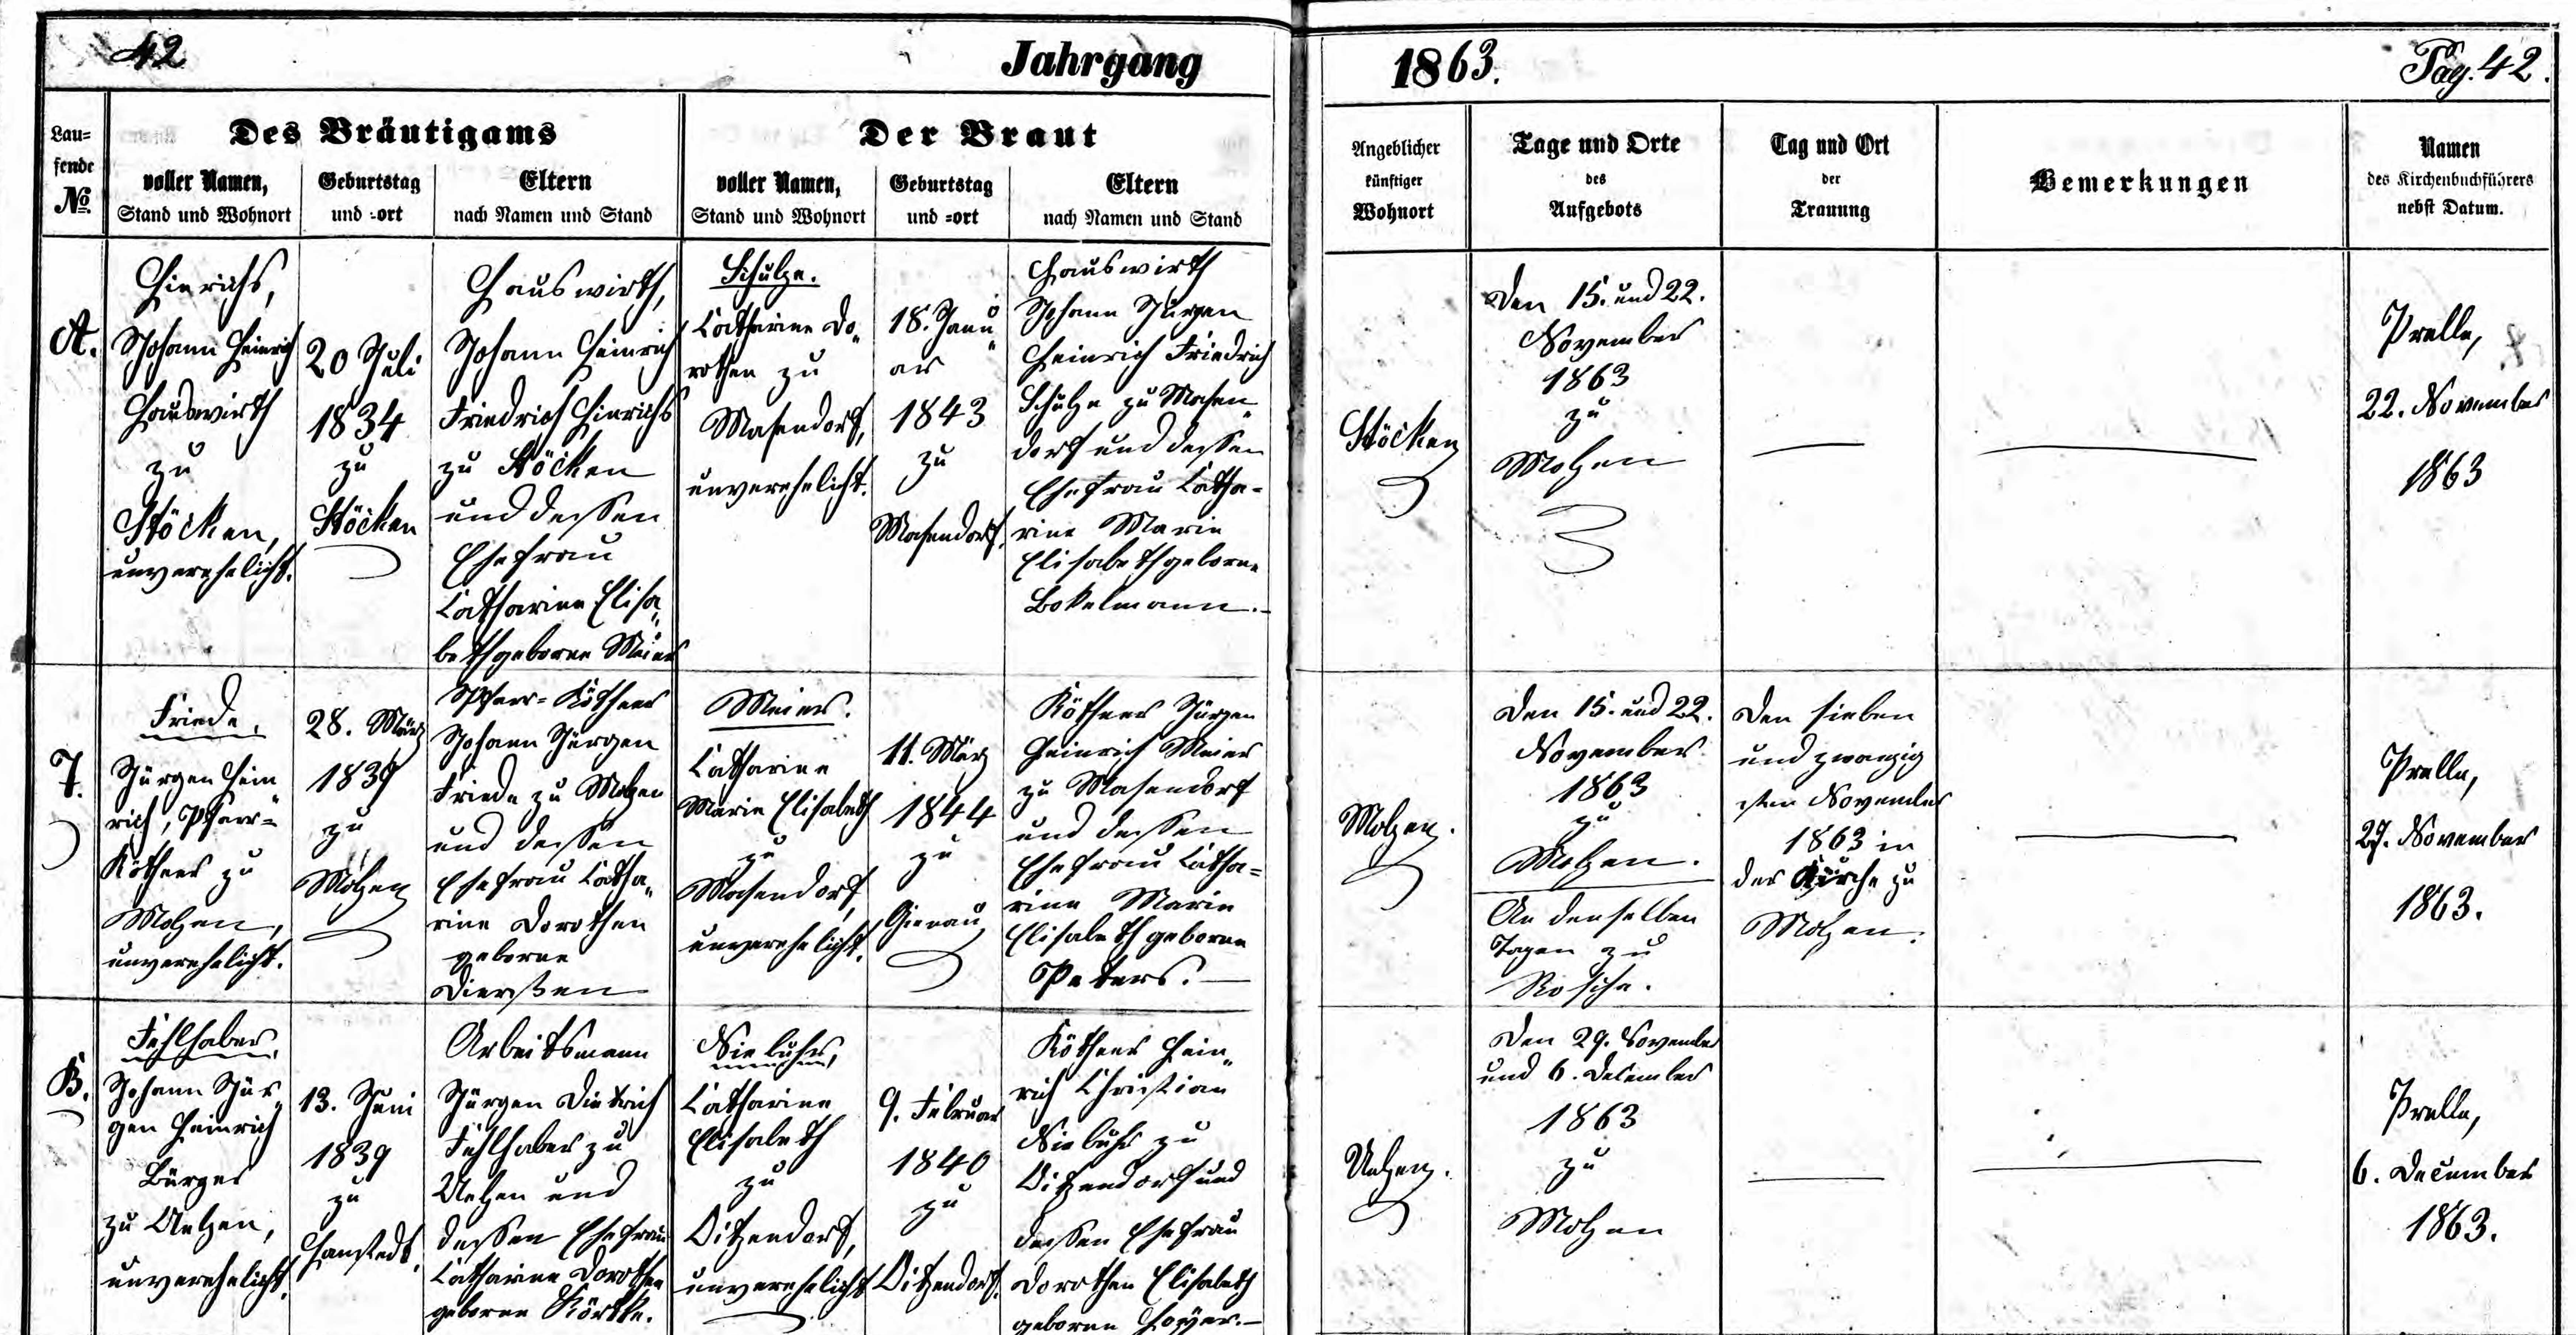 42
Jahrgang
1863.
Pag. 42.
Lau=
fende
No.
Des Bräutigams
voller Namen,
Stand und Wohnort
Geburtstag
und =ort
Eltern
nach Namen und Stand
Der Braut
voller Namen,
Stand und Wohnort
Geburtstag
und =ort
Eltern
nach Namen und Stand
Angeblicher
künftiger
Wohnort
Tage und Orte
des
Aufgebots
Tag und Ort
der
Trauung
Bemerkungen
Namen
des Kirchenbuchführers
nebst Datum.
A.
Hinrichs,
Johann Heinrich
Hauswirth
zu
Stöcken,
unverehelicht.
20 Juli
1834
zu
Stöcken
Hauswirth,
Johann Heinrich
Friedrich Hinrichs
zu Stöcken
und dessen
Ehefrau
Catharine Elisa„
beth geborne Meier
Schulze.
Catharine Do„
rothea zu
Masendorf,
unverehelicht.
18. Janu„
ar
1843
zu
Masendorf.
Hauswirth
Johann Jürgen
Heinrich Friedrich
Schulze zu Masen„
dorf und dessen
Ehefrau Catha=
rine Marie
Elisabeth geborne
Bokelmann.
Stöcken
Den 15. und 22.
November
1863
zu
Molzen
Pralle,
22. November
1863
7.
Friede,
Jürgen Hein„
rich, Pfarr=
Köthner zu
Molzen,
unverehelicht.
28. März
1839
zu
Molzen
Pfarr=Köthner
Johann Jürgen
Friede zu Molzen
und dessen
Ehefrau Catha„
rine Dorothea
geborne
Dierßen
Meier.
Catharine
Marie Elisabeth
zu
Masendorf,
unverehelicht.
11. März
1844
zu
Köthner Jürgen
Heinrich Meier
zu Masendorf
und dessen
Ehefrau Catha=
rine Marie
Elisabeth geborne
Peters.
Molzen.
Den 15. und 22.
November
1863
zu
Molzen.
An denselben
Tagen zu
Rosche.
Den sieben
und zwanzig
sten November
1863 in
der Kirche zu
Molzen.
Pralle,
27. November
1863.
B.
Fehlhaber,
Johann Jür„
gen Heinrich
Bürger
zu Uelzen,
unverehelicht.
13. Juni
1839
zu
Hanstedt.
Arbeitsmann
Jürgen Dietrich
Fehlhaber zu
Uelzen und
dessen Ehefrau
Catharine Dorothea
geborne Körtke.
Niebuhr,
Catharine
Elisabeth
zu
Oitzendorf,
unverehelicht
9. Februar
1840
zu
Oitzendorf.
Köthner Hein„
rich Christian
Niebuhr zu
Oitzendorf und
dessen Ehefrau
Dorothea Elisabeth
geborne Hoyer.
Uelzen.
Den 29. November
und 6. December
1863
zu
Molzen
Pralle,
6. December
1863.